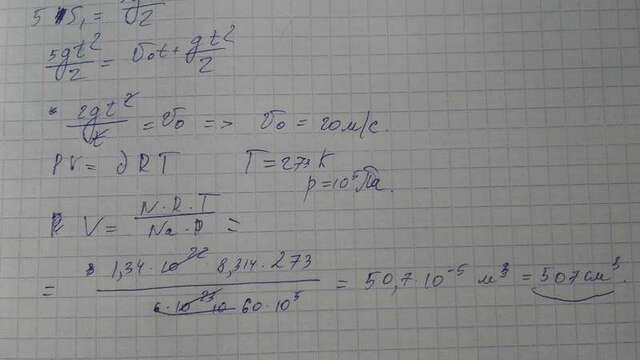 5 S₁ = g/2
5gt²/2 = v₀t + gt²/2
2gt²/t = v₀ => v₀ = 20 м/с.
PV = νRT T = 273 K
p = 10⁵ Па.
V = N·R·T / Na·P =
= 1,34·10²² 8,314·273 / 6·10²³ 10 60·10⁵ = 50,7·10⁻⁵ м³ = 507 см³.